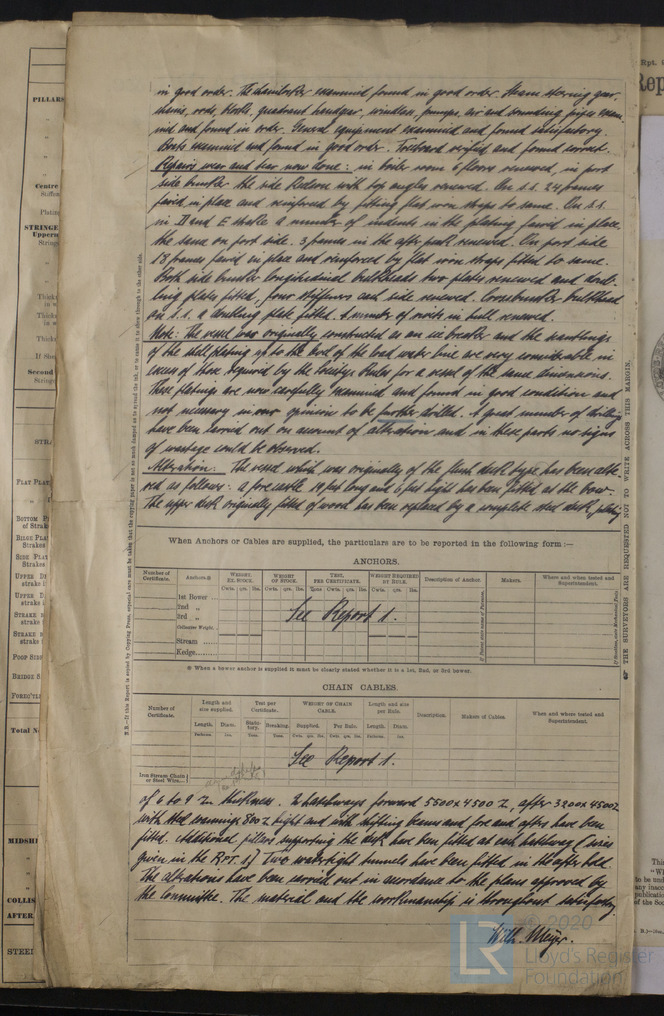 in good order. The chainlocker examined found in good order. Steam steering gear,
chains, rods, blocks, quadrant handgear, windlass, pumps, air and sounding pipes exam
ined and found in order. General equipment examined and found satisfactory.
Boats examined and found in good order. Freeboard verified and found correct.
Repairs wear and tear now done: in boiler room 6 floors renewed, in port
side bunker the side with top angles renewed. On s.s. 24 frames
faired in place and reinforced by fitting flat iron straps to same. On s.s.
in D and E strake a number of indents in the plating faired in place,
the same on port side. 3 frames in the after peak renewed. On port side
18 frames faired in place and reinforced by flat iron straps fitted to same.
Both side bunker longitudinal bulkheads two plates renewed and doub-
ling plates fitted, four stiffeners each side renewed. Crossbunker bulkhead
on s.s. a doubling plate fitted. A number of rivets in hull renewed.
Note: The vessel was originally constructed as an ice breaker and the scantlings
of the shell plating up to the level of the load water line are very considerable in
excess of those required by the Society's Rules for a vessel of the same dimensions.
These platings are now carefully examined and found in good condition and
not necessary in our opinion to be further drilled. A great number of drillings
have been carried out on account of alteration and in these parts no signs
of wastage could be observed.
Alteration: The vessel which was originally of the flush deck type has been alte
red as follows: a forecastle feet long and 6 feet hight has been fitted at the bow.
The upper deck originally fitted of wood has been replaced by a complete steel deck, plating
When Anchors or Cables are supplied, the particulars are to be reported in the following form:—
ANCHORS.
Number of Certificate. Anchors.※ WEIGHT, EX. STOCK. WEIGHT OF STOCK. TEST, PER CERTIFICATE. WEIGHT REQUIRED BY RULE. Description of Anchor. Makers. Where and when tested and Superintendent.
Cwts. qrs. lbs. Cwts. qrs. lbs. Tons Cwts. qrs. lbs. Cwts. qrs. lbs.
1st Bower
2nd „
3rd „
See Report 1.
Collective Weight.
Stream
Kedge
※ When a bower anchor is supplied it must be clearly stated whether it is a 1st, 2nd, or 3rd bower.
CHAIN CABLES.
Number of Certificate. Length and size supplied. Test per Certificate. WEIGHT OF CHAIN CABLE. Length and size per Rule. Description. Makers of Cables. When and where tested and Superintendent.
Length. Diam. Statutory. Breaking. Supplied. Per Rule. Length. Diam.
See Report 1.
Iron Stream Chain or Steel Wire
of 6 to 9 m/m thickness. 2 hatchways forward 5500 x 4500 m/m, after 3200 x 4500 m/m
with steel coamings 800 m/m hight and with shifting beams and fore and afters have been
fitted. Additional pillars supporting the deck have been fitted at each hatchway (sizes
given in the RPT. 1) Two watertight tunnels have been fitted in the after hold.
The alterations have been carried out in accordance to the plans approved by
the Committee. The material and the workmanship is throughout satisfactory.
Wilh. Meyer.
© 2020
LR Lloyd's Register
Foundation
N.B.—If this Report is copied by Copying Press, especial care must be taken that the copying paper is not so much damped as to spread the ink, or to cause it to show through to the other side.
☞ THE SURVEYORS ARE REQUESTED NOT TO WRITE ACROSS THIS MARGIN.
PILLARS
Centre
STRINGE
Second
Total N
MIDSHI
COLLIS
AFTER
STEE